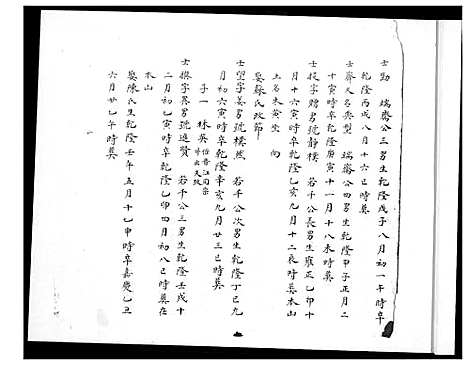 士勛　瑞齋公三男生乾隆戊子八月初一午時卒
乾隆丙戌八月十六巳時葬
士齋又名典型　瑞齋公四男生乾隆甲子正月二
十寅時卒乾隆庚寅十一月十八未時葬
士授字贈男號静樸　若千公長男生雍正乙卯十
月十六寅時卒乾隆乙亥九月十二辰時葬本山
土名朱黄坐　向
娶蘇氏改節
士望字姜男號樸然　若千公次男生乾隆丁巳九
月初六寅時卒乾隆辛亥九月廿三巳時葬
子一　林英
士撰字界男號進贊　若千公三男生乾隆壬戌十
二月初乙寅時卒乾隆乙卯四月初八巳時葬在
本山
娶陳氏生乾隆壬午五月十乙申時卒嘉慶乙丑
六月廿乙午時葬